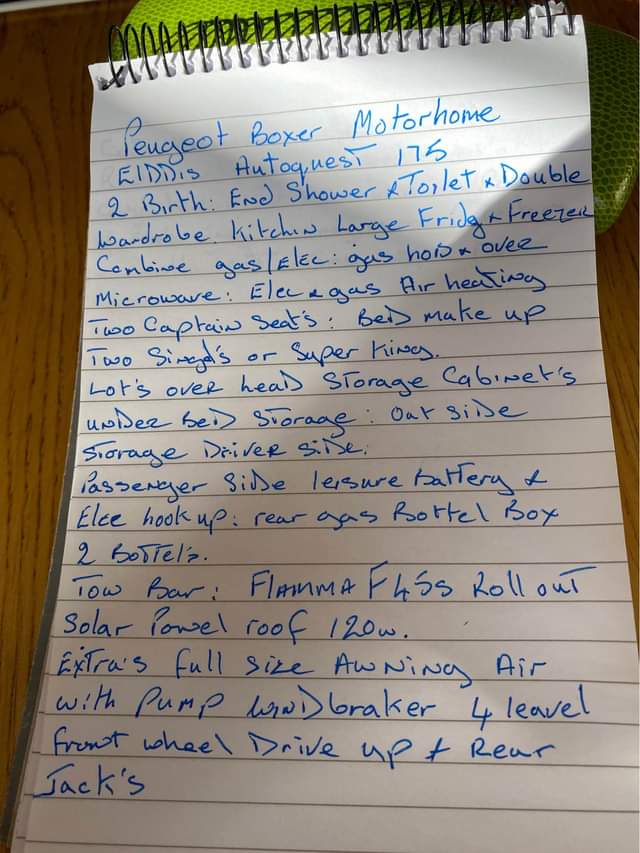 Peugeot Boxer Motorhome
ElDDis Autoquest 175
2 Birth: End Shower & Toilet & Double
Wardrobe. Kitchin Large Fridg & Freezer
Combine gas/Elec: gas hob & over
Microwave: Elec & gas Air heating
Two Captain Seat's: Bed make up
Two Singel's or Super King.
Lot's over head Storage Cabinet's
under Bed Storage: Out side
Storage Driver side:
Passenger Side leisure battery &
Elec hook up: rear gas Bottel Box
2 Bottel's.
Tow Bar: FIAMMA F45s Roll out
Solar Panel roof 120w.
Extra's full size Awning Air
with Pump windbraker 4 leavel
front wheel Drive up & Rear
Jack's